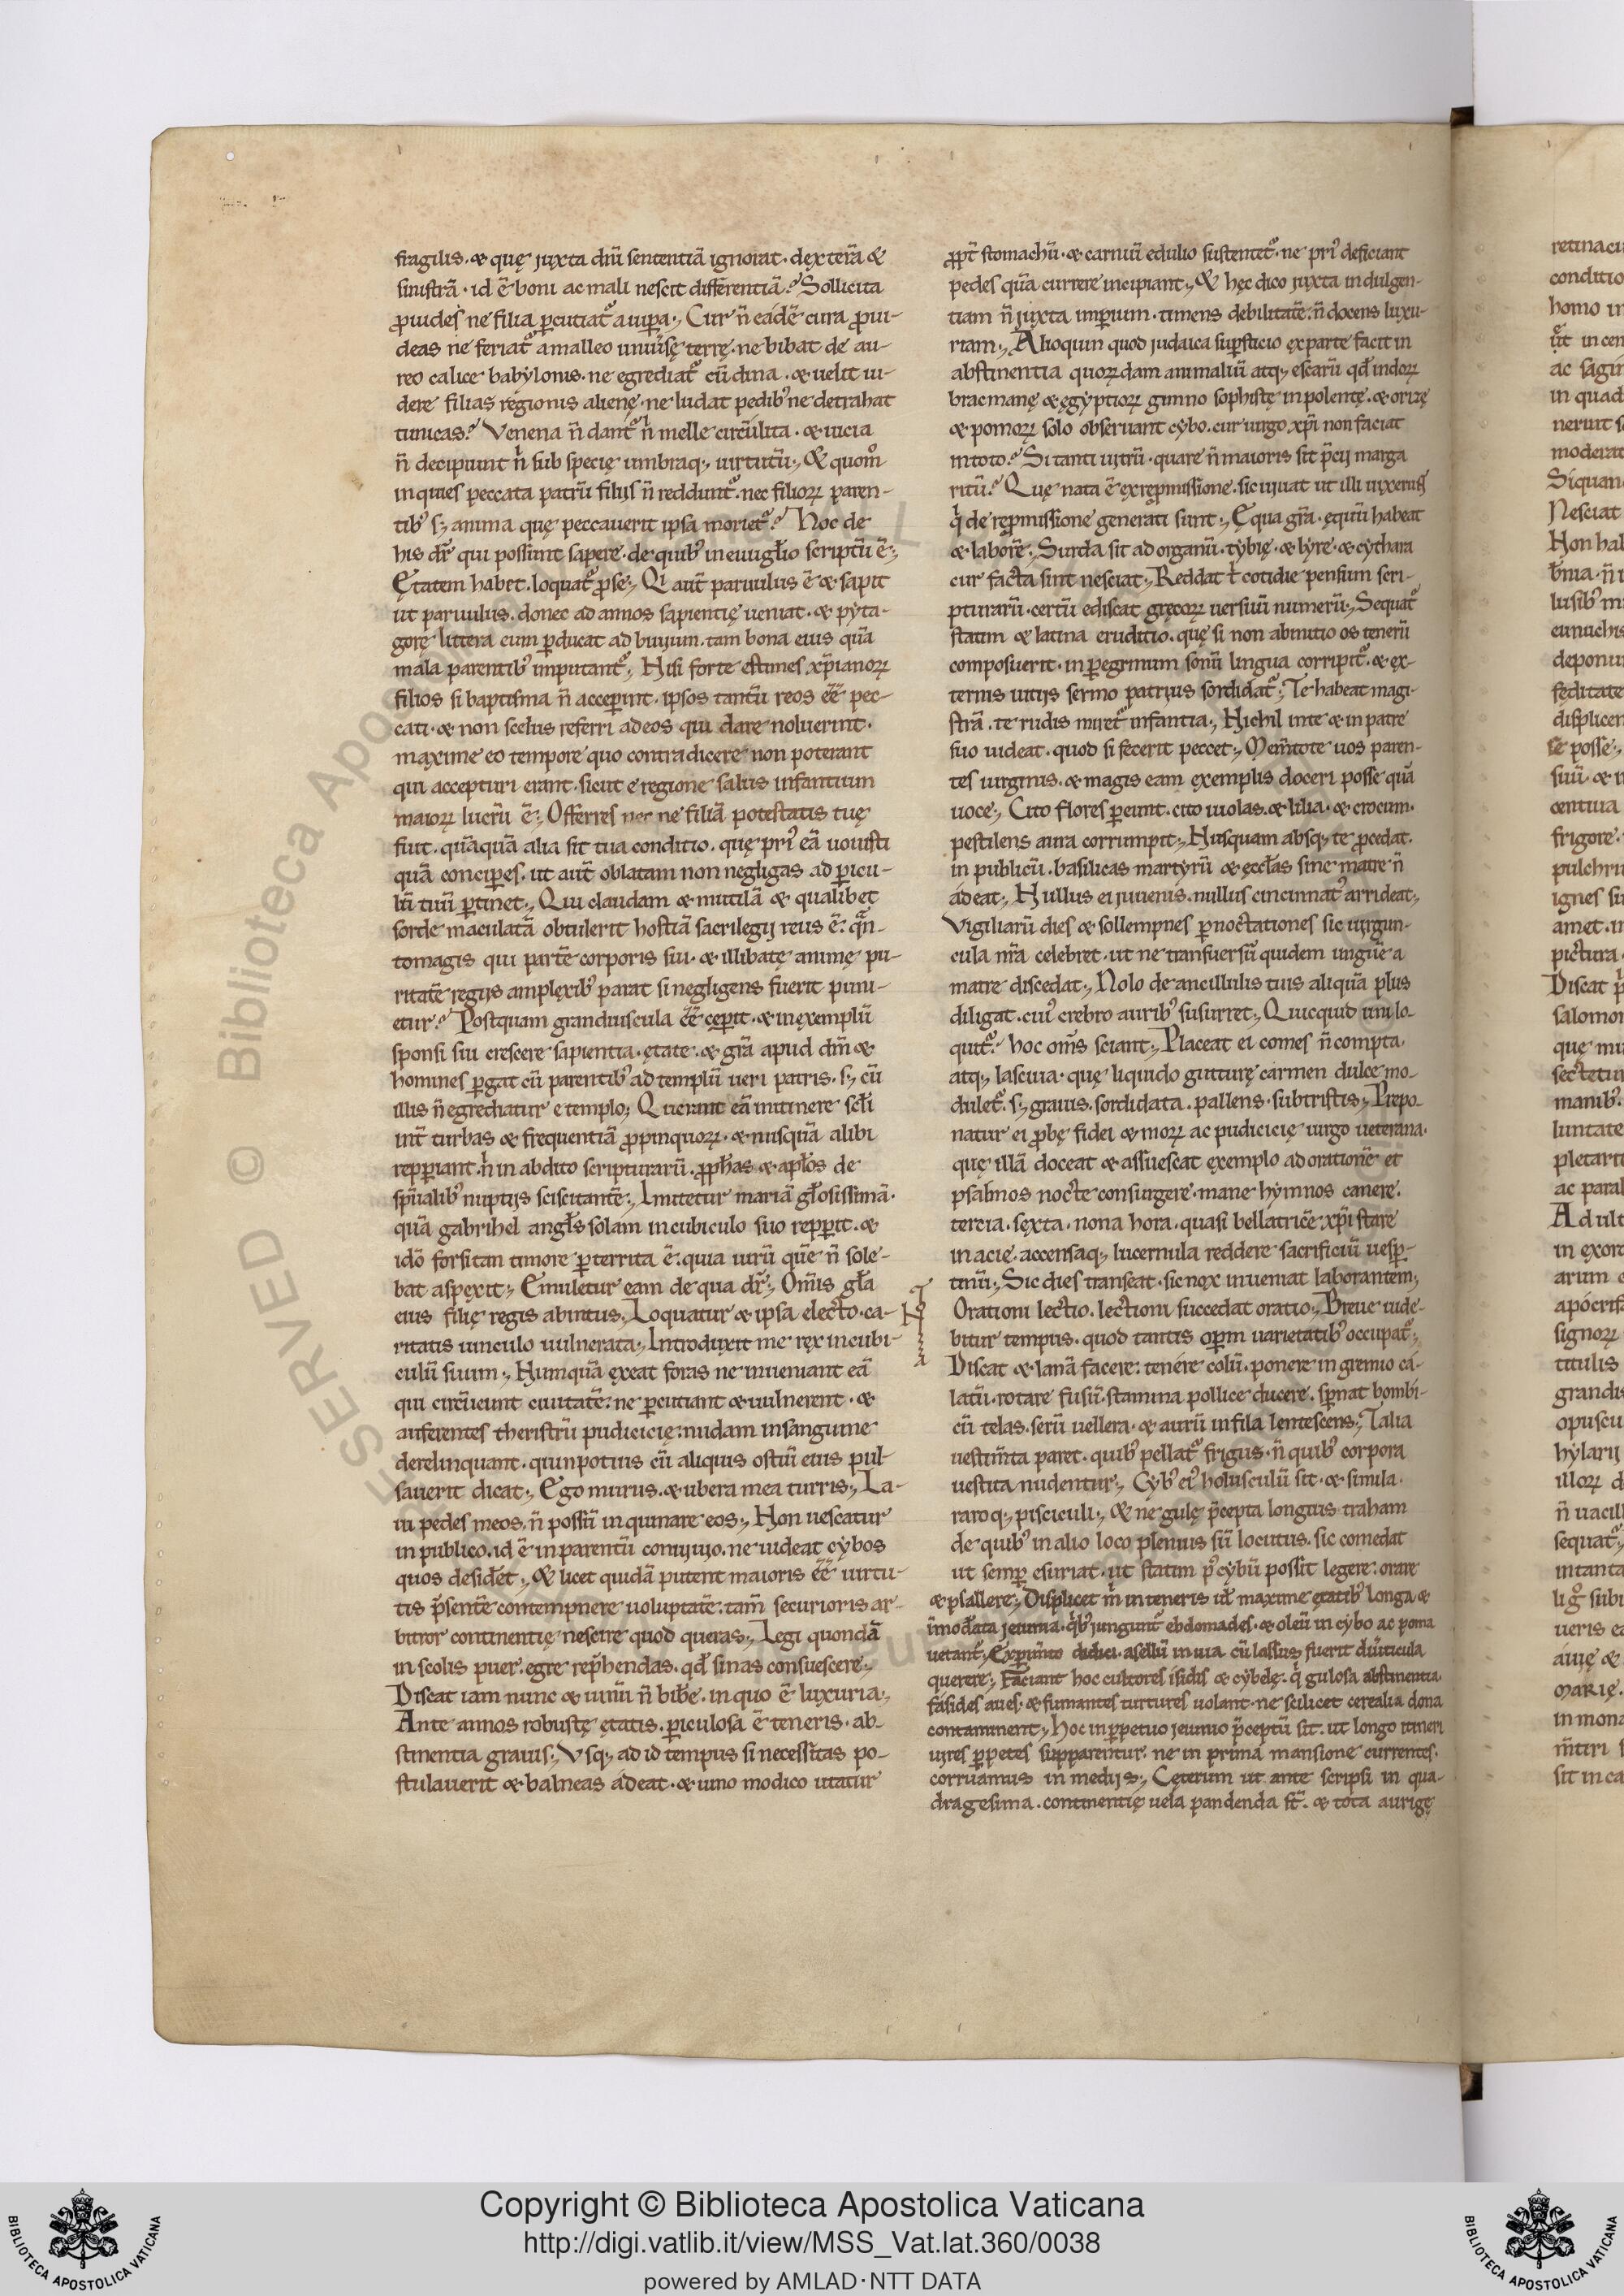 fragilis. & quę juxta dnı̄ sententiā ignorat. dexterā &
sinistrā. id ē boni ac mali nescit differentiā? Sollicita
ꝓuides ne filia ꝑcutiat᷑ a uiꝑa; Cur n̄ eádē cura ꝓui-
deas ne feriat᷑ a malleo uniūsę terrę. ne bibat de au-
reo calice babylonis. ne egrediat᷑ cū dina. & uelit ui-
dere filias regionis alienę. ne ludat pedib; ne detrahat
tunicas? Venena n̄ dant᷑ nͥ melle circūlita. & uicia
n̄ decipiunt nͥ sub specie umbraq; uirtutū; & quom̊
inquies peccata patrū filijs n̄ reddunt᷑. nec filioꝝ paren-
tib; s; anima quę peccauerit ipsa moriet᷑? Hoc de
his dr̄ qui possunt sapere. de quib; in euuglio scriptū ē;
Ętatem habet. loquat᷑ ꝓ se; Qi aut̄ paruulus ē & sapit
ut paruulus. donec ad annos sapientię ueniat. & pyta-
gorę littera eum ꝑducat ad biuium. tam bona eius quā
mala parentib; imputant᷑; Nisi forte estimes xp̄ianoꝝ
filios si baptisma n̄ acceꝑint. ipsos tantū reos ēē pec-
cati. & non scelus referri ad eos qui dare noluerint.
maxime eo tempore quo contradicere non poterant
qui accepturi erant. sicut e regione salus infantium
maioꝝ lucrū ē; Offerres nec ne filiā potestatis tuę
fuit. quāquā alia sit tua conditio. quę pri᾽ eā uouisti
quā conciꝑes. ut aut̄ oblatam non negligas ad ꝑicu-
lū tuū ꝑtinet; Qui claudam & mutilā & qualibet
sorde maculatā obtulerit hostiā sacrilegij reus ē. qn̄-
tomagis qui partē corporis sui. & illibatę animę pu-
ritatē regijs amplexib; parat si negligens fuerit puni-
etur? Postquam grandiuscula ēē cęꝑit. & in exemplū
sponsi sui crescere sapientia. ętate. & gr̄a apud dm̄ &
homines ꝑgat cū parentib; ad templū ueri patris. s; cū
illis n̄ egrediatur e templo; Querant eā in itinere scłi
int̄ turbas & frequentiā ꝓpinquoꝝ. & nusquā alibi
repꝑiant. nͥ in abdito scripturarū. ꝓphas & aplos de
spū̄alib; nuptijs sciscitantē; Imitetur mariā głosissimā.
quā gabrihel angls solam in cubiculo suo repꝑit. &
idō forsitan timore ꝑterrita ē. quia uirū quē n̄ sole-
bat aspexit; Emuletur eam de qua dr̄; Om̄is gła
eius filię regis abintus; Loquatur & ipsa electo. ca-
ritatis uinculo uulnerata; Introduxit me rex in cubi-
culū suum; Numquā exeat foras ne inueniant eā
qui circūeunt ciuitatē: ne ꝑcutiant & uulnerent. &
auferentes theristrū pudicicię: nudam in sanguine
derelinquant. quin potius cū aliquis ostiū eius pul-
sauerit dicat; Ego murus. & ubera mea turris; La-
ui pedes meos. n̄ possū inquinare eos; Non uescatur
in publico. id ē in parentū conuiuio. ne uideat cybos
quos desid̄et; & licet quidā putent maioris ēē uirtu-
tis p̄sentē contempnere uoluptatē: tam̄ securioris ar-
bitror continentię nescire quod queras; Legi quondā
in scolis puer. egre rep̄hendas. qđ sinas consuescere;
Discat iam nunc & uinū n̄ bibe. in quo ē luxuria;
Ante annos robustę etatis. ꝑiculosa ē teneris. ab-
stinentia grauis; Usq; ad id tempus si necessitas po-
stulauerit & balneas adeat. & uino modico utatur
ꝓpt̄ stomachū. & carniū edulio sustentet᷑. ne pri᾽ deficiant
pedes quā currere incipiant; & hęc dico juxta indulgen-
tiam n̄ juxta imꝑium. timens debilitatē. n̄ docens luxu-
riam; Alioquin quod judaica suꝑsticio ex parte facit in
abstinentia quoꝝdam animaliū atq; escarū qđ indoꝝ
bracmanę & ęgyptioꝝ gimno sophistę in polentę. & orizę
& pomoꝝ solo obseruant cybo. cur uirgo xp̄i non faciat
in toto? Si tanti uitrū. quare n̄ maioris sit p̄cij marga
ritū? Quę nata ē ex repmissione. sic uiuat ut illi uixerunt
qͥ de repmissione generati sunt; Equa gr̄a. ęquū habeat
& laborē; Surda sit ad organū. tybię. & lyre. & cythara
cur facta sint nesciat; Reddat tͥ cotidie pensum scri-
pturarū. certū ediscat gręcoꝝ uersuū numerū; Sequat᷑
statim & latina eruditio. quę si non ab initio os tenerū
composuerit. in ꝑegrinum sonū lingua corripit᷑. & ex-
ternis uitijs sermo patrius sordidat᷑; Te habeat magi-
strā. te rudis miret᷑ infantia; Nichil in te & in patre
suo uideat. quod si fecerit peccet; Mem̄tote uos paren-
tes uirginis. & magis eam exemplis doceri posse quā
uoce; Cito flores ꝑeunt. cito uiolas. & lilia. & crocum.
pestilens aura corrumpit; Nusquam absq; te ꝓcedat.
in publicū. basilicas martyrū & ęccłas sine matre n̄
ádeat; Nullus ei juuenis. nullus cincinnat᾽ arrideat;
Vigiliarū dies & sollempnes ꝑnoctationes sic uirgun-
cula nr̄a celebret. ut ne transuersū quidem unguē a
matre discedat; Nolo de ancillulis tuis aliquā plus
diligat. cui᾽ crebro aurib; susurret; Quicquid uni lo-
quit᷑. hoc om̄s sciant; Placeat ei comes n̄ compta.
atq; lasciua. quę liquido gutturę carmen dulce mo-
dulet᷑. s; grauis. sordidata. pallens. subtristis; Prepo-
natur ei ꝓbę fidei & moꝝ ac pudicicię uirgo ueterana.
quę illā doceat & assuescat exemplo ad orationē et
psalmos nocte consurgere. mane hymnos canere.
tercia. sexta. nona hora. quasi bellatricē xp̄i stare
in acie. accensaq; lucernula reddere sacrificiū uesꝑ-
tinū; Sic dies transeat. sic nox inueniat laborantem;
Orationi lectio. lectioni succedat oratio; Breue uide-
bitur tempus. quod tantis oꝑm uarietatib; occupat᷑;
Discat & lanā facere: tenére colū. ponere in gremio ca-
latū. rotare fusū. stamina pollice ducere. sꝑnat bombi-
cū telas. serū uellera. & aurū in fila lentescens; Talia
uestim̄ta paret. quib; pellat᷑ frigus. n̄ quib; corpora
uestita nudentur; Cyb᾽ ei᾽ holusculū sit. & simila.
raroq; pisciculi; & ne gulę p̄cepta longius traham
de quib; in alio loco plenius sū locutus. sic comedat
ut semꝑ esuriat. ut statim p᾽ cybū possit legere: orare
& psallere; Displicet mͥ in teneris uł maxime ętatib; longa &
im̄od̄ata jeiunia. qͥb; jungunt᷑ ebdomades. & oleū in cybo ac poma
uetant᷑; Exꝑim̄to didici. asellū in uia cū lassus fuerit diūticula
querere; Faciant hoc cultores isidis & cybelę. qͥ gulosa abstinentia.
fásides aues. & fumantes turtures uolant. ne scilicet cerealia dona
contaminent; Hoc in ꝑpetuo jeiunio p̄ceptū sit. ut longo itineri
uires ꝑpetes supparentur. ne in prima mansione currentes.
corruamus in medijs; Cęterum ut ante scripsi in qua-
dragesima. continentię uela pandenda st̄. & tota aurigę
© Biblioteca Apos
SERVED
Copyright © Biblioteca Apostolica Vaticana
http://digi.vatlib.it/view/MSS_Vat.lat.360/0038
powered by AMLAD·NTT DATA
BIBLIOTECA APOSTOLICA VATICANA
BIBLIOTECA APOSTOLICA VATICANA